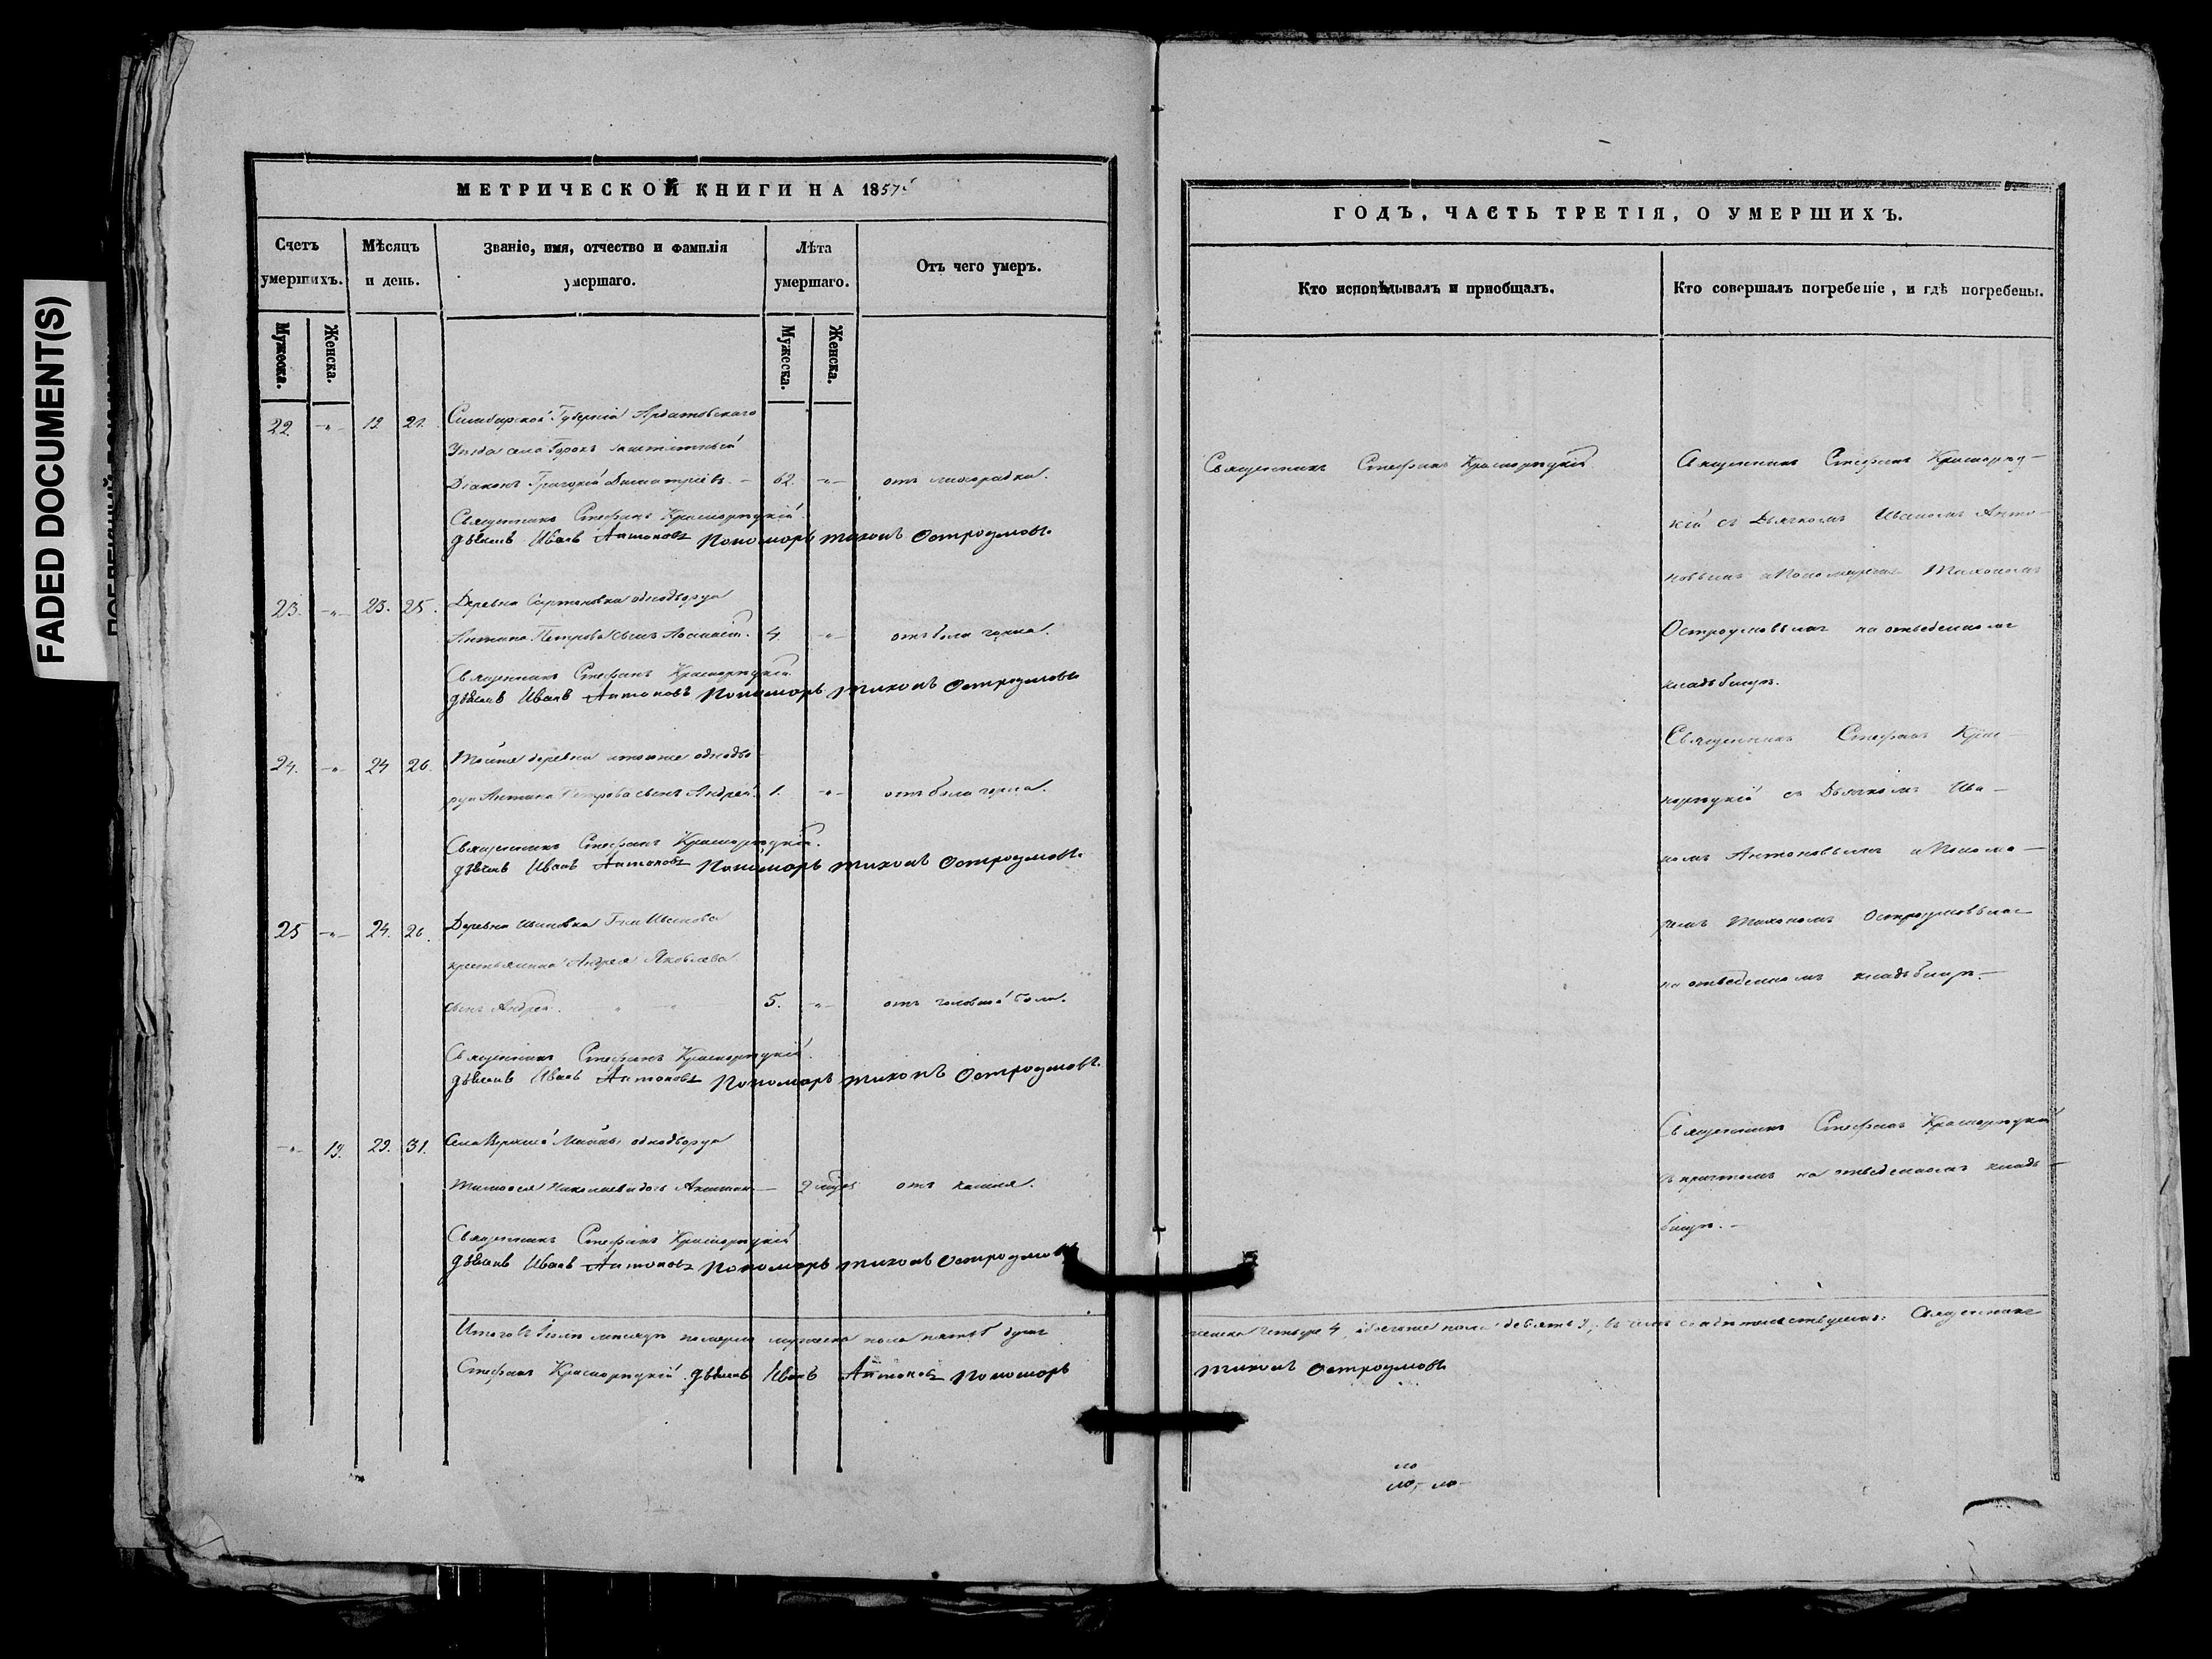 FADED DOCUMENT(S)
МЕТРИЧЕСКОЙ КНИГИ НА 1857
Счетъ умершихъ.
Мѣсяцъ и день.
Званіе, имя, отчество и фамилія умершаго.
Лѣта умершаго.
Отъ чего умеръ.
Мужеска.
Женска.
Мужеска.
Женска.
22. 19 21. Симбирской Губерніи Ардатовскаго
Уѣзда села
Діаконъ Григорій Димитріевъ. 62. отъ лихорадки.
Священникъ Стефанъ Красноруцкій
Дьячекъ Иванъ Антоновъ Пономарь Тихонъ Остроумовъ.
23. 23. 25. Деревни однодворца
Антипа Петрова сынъ 4. отъ боли горла.
Священникъ Стефанъ Красноруцкій
Дьячекъ Иванъ Антоновъ Пономарь Тихонъ Остроумовъ
24. 24 26. Тойже деревни тогоже однодво-
рца Антипа Петрова сынъ Андрей. 1. отъ боли горла.
Священникъ Стефанъ Красноруцкій.
Дьячекъ Иванъ Антоновъ Пономарь Тихонъ Остроумовъ.
25 24. 26. Деревни Ивановки Г-на Иванова
крестьянина Андрея Яковлева
сынъ Андрей. 5. отъ головной боли.
Священникъ Стефанъ Красноруцкій.
Дьячекъ Иванъ Антоновъ Пономарь Тихонъ Остроумовъ.
19. 29. 31. Села однодворца
Тимофея Николаева дочь 2 отъ кашля.
Священникъ Стефанъ Красноруцкій
Дьячекъ Иванъ Антоновъ Пономарь Тихонъ Остроумовъ
Итого въ Іюлѣ мѣсяцѣ померло мужеска пола пять 5 душъ
Стефанъ Красноруцкій Дьячекъ Иванъ Антоновъ Пономарь
ГОДЪ, ЧАСТЬ ТРЕТІЯ, О УМЕРШИХЪ.
Кто исповѣдывалъ и пріобщалъ.
Кто совершалъ погребеніе, и гдѣ погребены.
Священникъ Стефанъ Красноруцкій
Священникъ Стефанъ Красноруц-
кій съ Дьячкомъ Иваномъ Анто-
новымъ и Пономаремъ Тихономъ
Остроумовымъ на отведенномъ
кладбищѣ.
Священникъ Стефанъ Крас-
норуцкій съ Дьячкомъ Ива-
номъ Антоновымъ и Понома-
ремъ Тихономъ Остроумовымъ
на отведенномъ кладбищѣ.
Священникъ Стефанъ Красноруцкій
съ причтомъ на отведенномъ клад-
бищѣ.
женска четыре 4, обоего пола девять 9, въ чемъ свидѣтельствуемъ: Священникъ
Тихонъ Остроумовъ